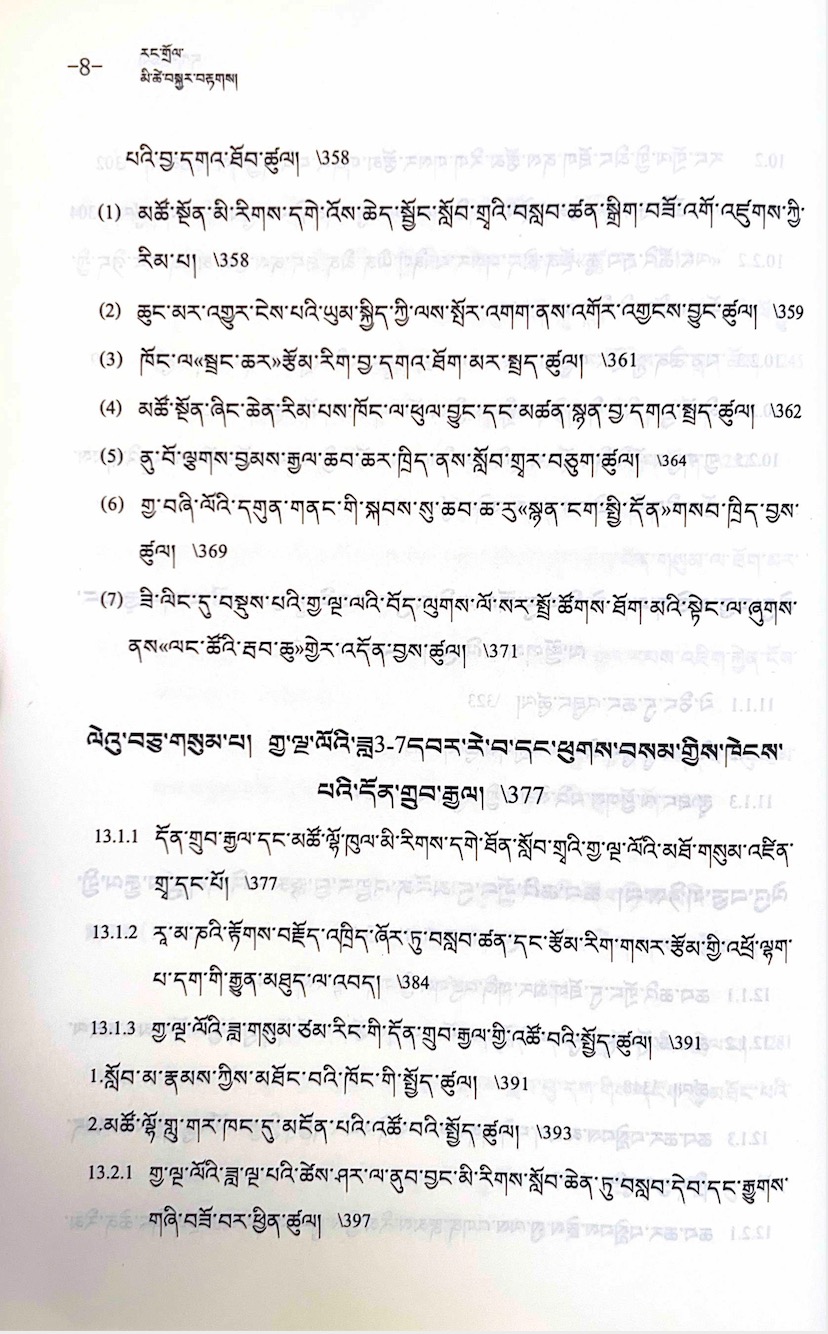 -8-
རང་གྲོལ་
མི་ཚེ་བསྐྱར་བརྟགས།
པའི་བྱ་དགའ་ཐོབ་ཚུལ། \358
(1) མཚོ་སྔོན་མི་རིགས་དགེ་འོས་ཆེད་སྦྱོང་སློབ་གྲྭའི་བསླབ་ཚན་སྒྲིག་བཟོ་འགོ་འཛུགས་ཀྱི་
རིམ་པ། \358
(2) ཆུང་མར་འགྱུར་ངེས་པའི་ཡུམ་སྐྱིད་ཀྱི་ལས་སྤོར་འགག་ནས་འགོར་འགྱངས་བྱུང་ཚུལ། \359
(3) ཁོང་ལ«སྦྲང་ཆར»རྩོམ་རིག་བྱ་དགའ་ཐོག་མར་སྤྲད་ཚུལ། \361
(4) མཚོ་སྔོན་ཞིང་ཆེན་རིམ་པས་ཁོང་ལ་ཕུལ་བྱུང་དང་མཚན་སྙན་བྱ་དགའ་སྤྲད་ཚུལ། \362
(5) ནུ་བོ་ལྕགས་བྱམས་རྒྱལ་ཆབ་ཆར་ཁྲིད་ནས་སློབ་གྲྭར་བཅུག་ཚུལ། \364
(6) གྱ་བཞི་ལོའི་དགུན་གནང་གི་སྐབས་སུ་ཆབ་ཆ་རུ«སྙན་ངག་སྤྱི་དོན»གསབ་ཁྲིད་བྱས་
ཚུལ། \369
(7) ཟི་ལིང་དུ་བསྡུས་པའི་གྱ་ལྔ་ལའི་བོད་ལུགས་ལོ་སར་སྤྲོ་ཚོགས་ཐོག་མའི་སྟེང་ལ་ཞུགས་
ནས«ལང་ཚོའི་རབ་ཆུ»གྱེར་འདོན་བྱས་ཚུལ། \371
ལེའུ་བཅུ་གསུམ་པ། གྱ་ལྔ་ལོའི་ཟླ3-7དབར་རེ་བ་དང་ཕུགས་བསམ་གྱིས་ཁེངས་
པའི་དོན་གྲུབ་རྒྱལ། \377
13.1.1 དོན་གྲུབ་རྒྱལ་དང་མཚོ་ལྷོ་ཁུལ་མི་རིགས་དགེ་ཐོན་སློབ་གྲྭའི་གྱ་ལྔ་ལོའི་མཐོ་གསུམ་འཛིན་
གྲྭ་དང་པོ། \377
13.1.2 རཱ་མ་ཎའི་རྟོགས་བརྗོད་འཁྲིད་ཞོར་ཏུ་བསླབ་ཚན་དང་རྩོམ་རིག་གསར་རྩོམ་གྱི་འཕྲོ་ལྷག་
པ་དག་གི་རྒྱུན་མཐུད་ལ་འབད། \384
13.1.3 གྱ་ལྔ་ལོའི་ཟླ་གསུམ་ཙམ་རིང་གི་དོན་གྲུབ་རྒྱལ་གྱི་འཚོ་བའི་སྤྱོད་ཚུལ། \391
1.སློབ་མ་རྣམས་ཀྱིས་མཐོང་བའི་ཁོང་གི་སྤྱོད་ཚུལ། \391
2.མཚོ་ལྷོ་གླུ་གར་ཁང་དུ་མངོན་པའི་འཚོ་བའི་སྤྱོད་ཚུལ། \393
13.2.1 གྱ་ལྔ་ལོའི་ཟླ་ལྔ་པའི་ཚེས་ཤར་ལ་ནུབ་བྱང་མི་རིགས་སློབ་ཆེན་ཏུ་བསླབ་དེབ་དང་རྒྱུགས་
གཞི་བཟོ་བར་ཕྱིན་ཚུལ། \397